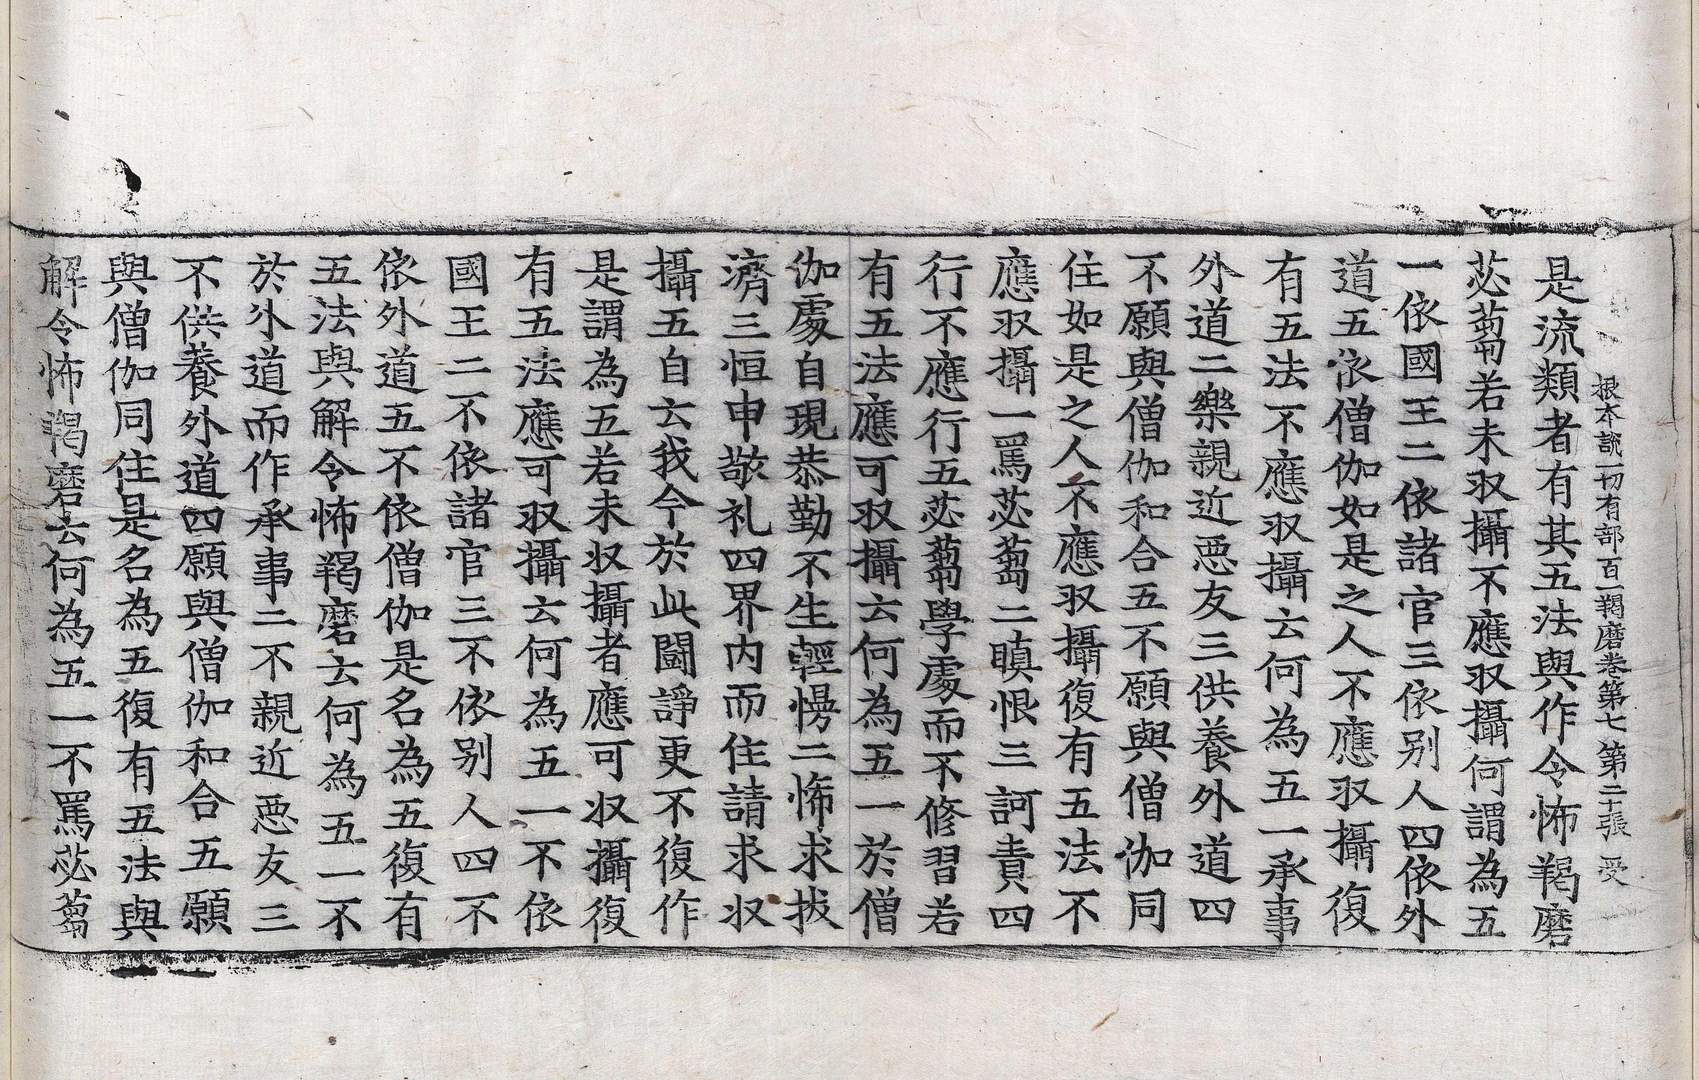 根本說一切有部百一羯磨卷第七 第二十張 受
是流類者有其五法與作令怖羯磨
苾蒭若未収攝不應収攝何謂為五
一依國王二依諸官三依别人四依外
道五依僧伽如是之人不應収攝復
有五法不應収攝云何為五一承事
外道二樂親近惡友三供養外道四
不願與僧伽和合五不願與僧伽同
住如是之人不應収攝復有五法不
應収攝一罵苾蒭二瞋恨三訶責四
行不應行五苾蒭學處而不修習若
有五法應可収攝云何為五一於僧
伽處自現恭勤不生輕慢二怖求拔
濟三恒申敬礼四界内而住請求収
攝五自云我今於此鬪諍更不復作
是謂為五若未収攝者應可収攝復
有五法應可収攝云何為五一不依
國王二不依諸官三不依别人四不
依外道五不依僧伽是名為五復有
五法與解令怖羯磨云何為五一不
於外道而作承事二不親近惡友三
不供養外道四願與僧伽和合五願
與僧伽同住是名為五復有五法與
解令怖羯磨云何為五一不罵苾蒭